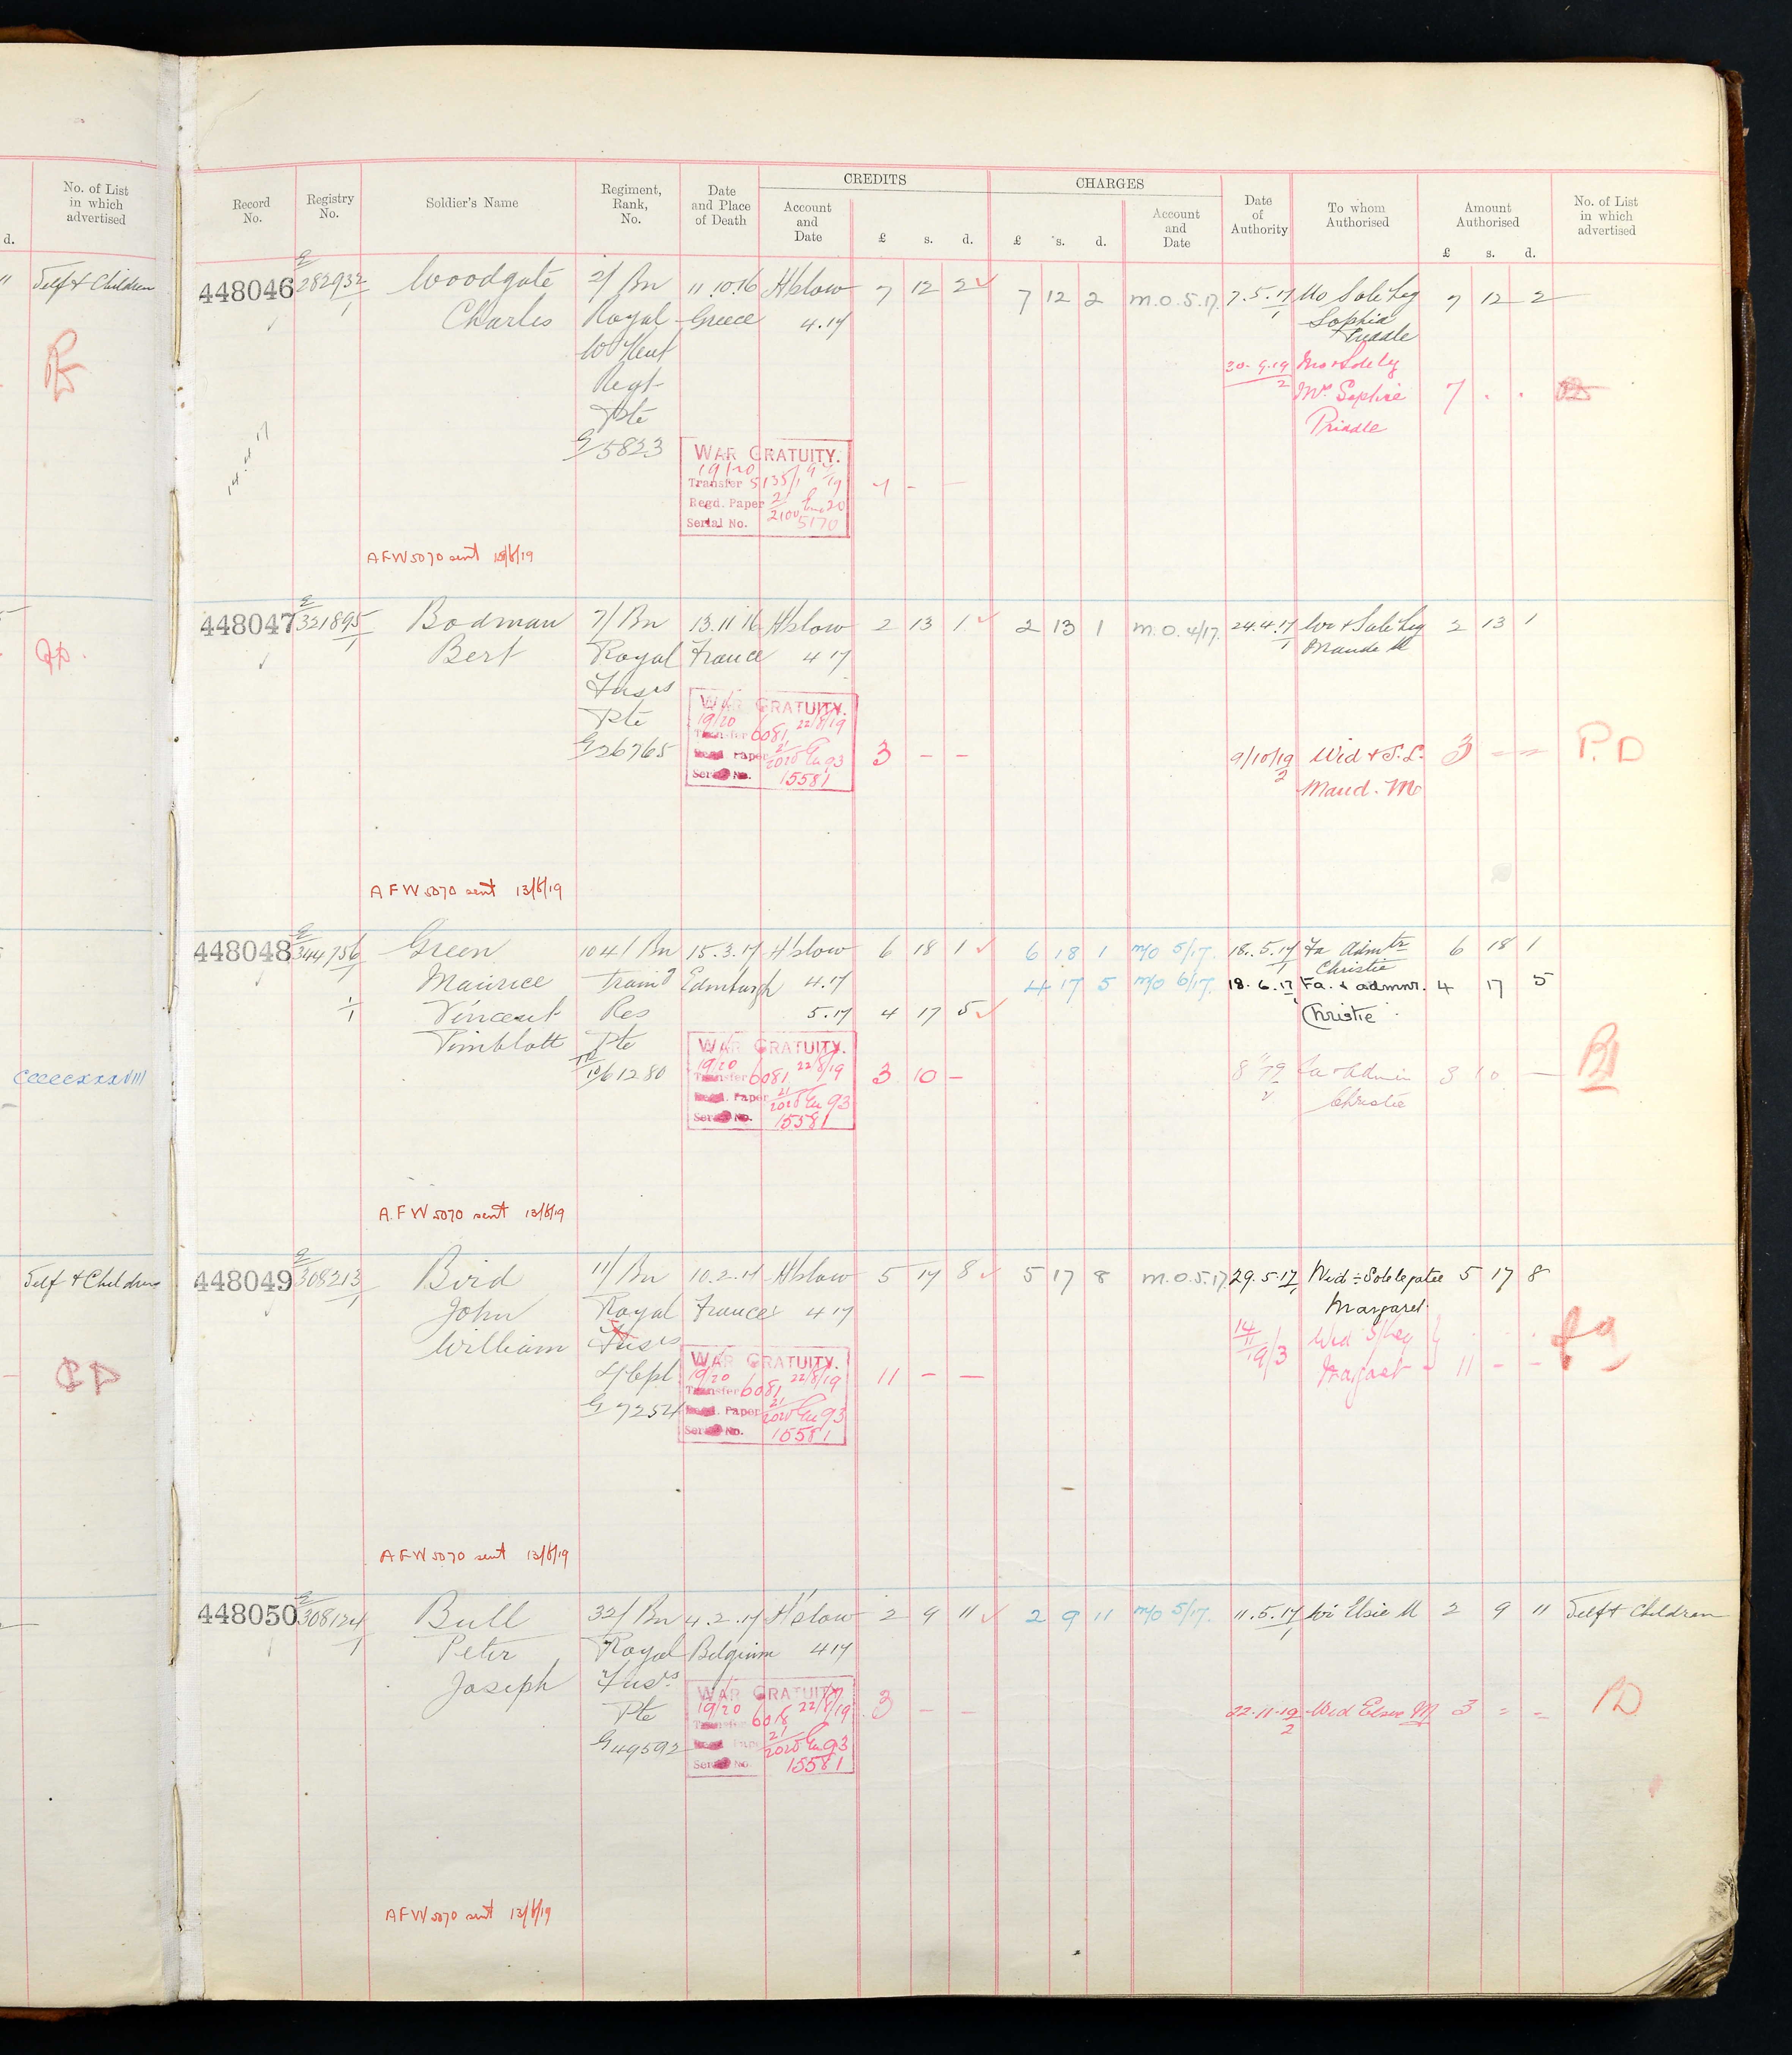 No. of List
in which
advertised
d.
Self & Children
Self & Children
CREDITS
CHARGES
Record
No.
Registry
No.
Soldier's Name
Regiment,
Rank,
No.
Date
and Place
of Death
Account
and
Date
£ s. d.
£ s. d.
Account
and
Date
Date
of
Authority
To whom
Authorised
Amount
Authorised
£ s. d.
No. of List
in which
advertised
448046 E/282932/1 Woodgate 2/ Bn 11.10.16 H'slow 7 12 2 7 12 2 M.O.5.17. 7.5.17 Mo Sole Leg 7 12 2
Charles Royal Greece 4.17 Sophia
W Kent Priddle
Regt 30.9.19/2 Mo & Sole Leg
Pte Mrs Sophia 7 . .
G/5823 Priddle
14.4.17
WAR GRATUITY.
19/20
Transfer 5135/1
Regd. Paper 21/2100
Serial No. 5170
7 - -
AFW 5070 sent
448047 E/321895/1 Bodman 7/ Bn 13.11.16 H'slow 2 13 1 2 13 1 M.O. 4/17. 24.4.17/1 Wi & Sole Leg 2 13 1
Bert Royal France 4 17 Maude M
Fusrs
Pte
G/26765
WAR GRATUITY.
19/20 22/8/19
Transfer 6081
Regd. Paper 21/2020 93
Serial No. 15581
3 - - 9/10/19/2 Wid & S.L. 3 - - P.D
Maud. M
AFW 5070 sent 13/8/19
448048 E/344756/1 Green 104/ Bn 15.3.17 H'slow 6 18 1 6 18 1 M/O 5/17. 18.5.17/1 Fa Admtr 6 18 1
Maurice Traing Edinburgh 4.17 4 17 5 M/O 6/17. Christie
18.6.17 Fa. & admnr. 4 17 5
Vincent Res 5.17 4 17 5 Christie
Pimblott Pte
TR/10/61280
WAR GRATUITY.
19/20 22/8/19
Transfer 6081
Regd. Paper 21/2020 93
Serial No. 15581
3 10 - Fa & Admin 3 10 -
Christie
A.F W 5070 sent 13/8/19
448049 E/308213/1 Bird 11/ Bn 10.2.17 H'slow 5 17 8 5 17 8 M.O.5.17 29.5.17/1 Wid & Sole legatee 5 17 8
John Royal France 4 17 Margaret
William Fusrs 14/11/19/3 Wid S/Leg
Margaret 11 - -
G 7254
WAR GRATUITY.
19/20 22/8/19
Transfer 6081
Regd. Paper 21/2020 93
Serial No. 15581
11 - -
AFW 5070 sent 13/8/19
448050 E/308124/1 Bull 32/ Bn 4.2.17 H'slow 2 9 11 2 9 11 M/O 5/17. 11.5.17/1 Wi Elsie M 2 9 11 Self & Children
Peter Royal Belgium 4 17
Joseph Fusrs
Pte
G 49592
WAR GRATUITY
19/20 22/8/19
Transfer 6018
Regd. Paper 21/2020 93
Serial No. 15581
3 - - 22.11.19/2 Wid Elsie M 3 - - PD
AFW 5070 sent 13/8/19